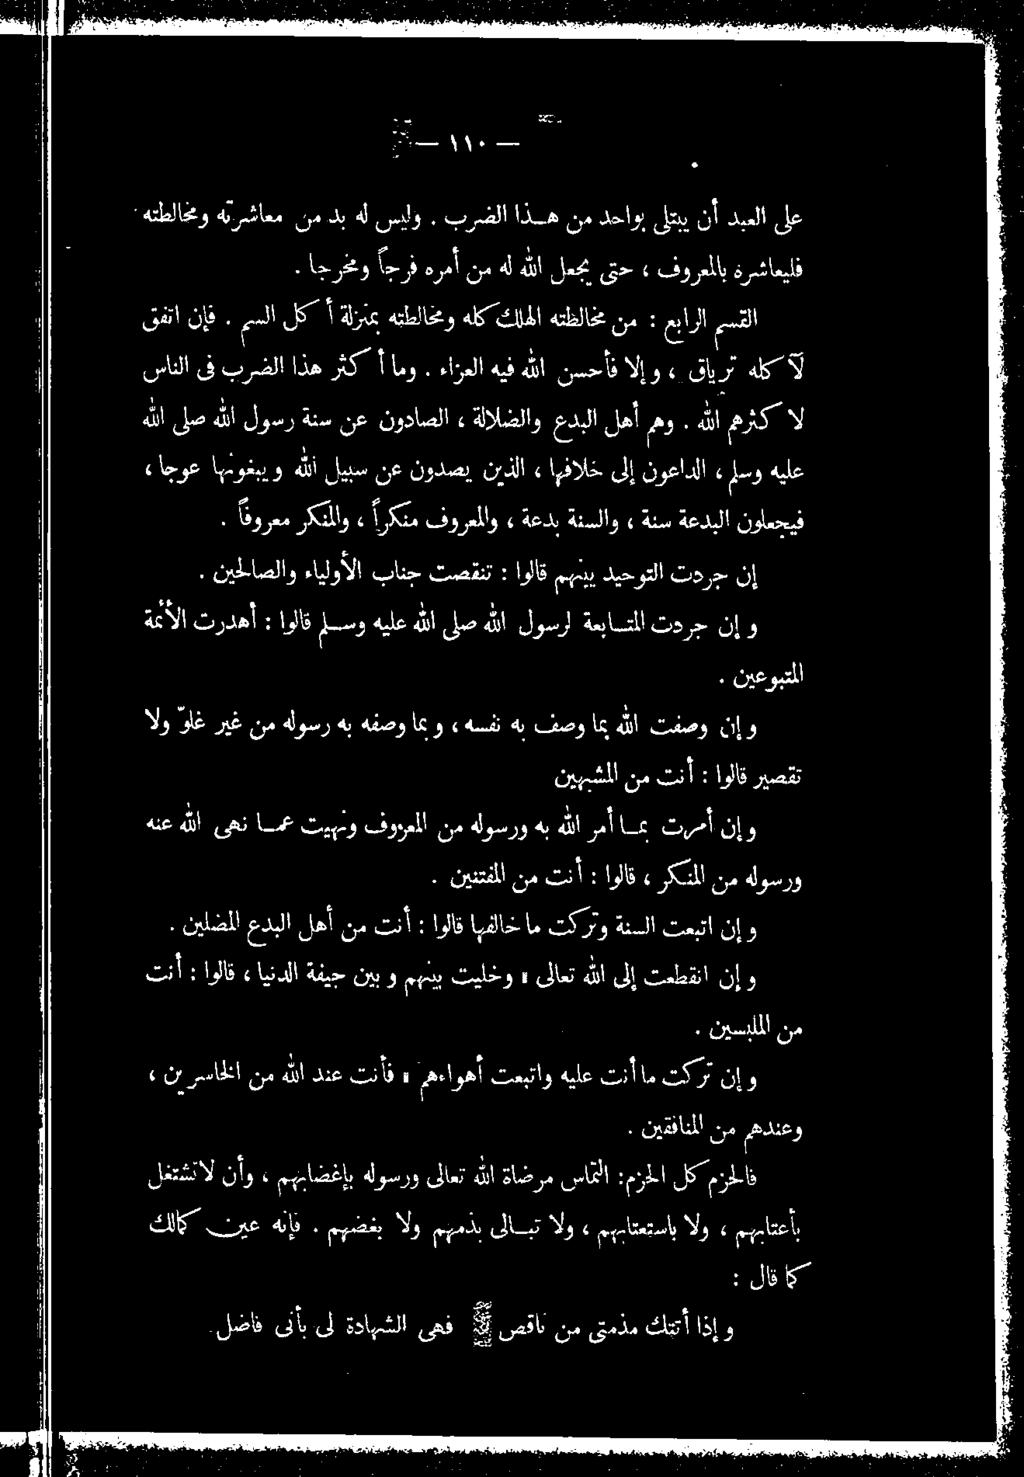 — ١١٠ —
على العبد أن يبتلى بواحد من هـذا الضرب . وليس له بد من معاشرته ومخالطته
فليعاشره بالمعروف ، حتى يجعل الله له من أمره فرجاً ومخرجا .
القسم الرابع : من مخالطته الهلك كله ومخالطته بمنزلة أكل السم . فإن اتفق
لآكله ترياق ، وإلا فأحسن الله فيه العزاء . وما أكثر هذا الضرب فى الناس
لا كثرهم الله . وهم أهل البدع والضلالة ، الصادون عن سنة رسول الله صلى الله
عليه وسلم ، الداعون إلى خلافها ، الذين يصدون عن سبيل الله ويبغونها عوجا ،
فيجعلون البدعة سنة ، والسنة بدعة ، والمعروف منكراً ، والمنكر معروفاً .
إن جردت التوحيد بينهم قالوا : تنقصت جناب الأولياء والصالحين .
وإن جردت المتـابعة لرسول الله صلى الله عليه وسـلم قالوا : أهدرت الأئمة
المتبوعين .
وإن وصفت الله بما وصف به نفسه ، وبما وصفه به رسوله من غير غلوّ ولا
تقصير قالوا : أنت من المشبهين
وإن أمرت بمـا أمر الله به ورسوله من المعروف ونهيت عمـا نهى الله عنه
ورسوله من المنكر ، قالوا : أنت من المفتنين .
وإن اتبعت السنة وتركت ما خالفها قالوا : أنت من أهل البدع المضلين .
وإن انقطعت إلى الله تعالى ، وخليت بينهم وبين جيفة الدنيا ، قالوا : أنت
من الملبسين .
وإن تركت ما أنت عليه واتبعت أهواءهم ، فأنت عند الله من الخاسرين ،
وعندهم من المنافقين .
فالحزم كل الحزم : التماس مرضاة الله تعالى ورسوله بإغضابهم ، وأن لا تشتغل
بأعتابهم ، ولا باستعتابهم ، ولا تبـالى بذمهم ولا بغضهم . فإنه عين كمالك
كما قال :
وإذا أتتك مذمتى من ناقص فهى الشهادة لى بأنى فاضل.